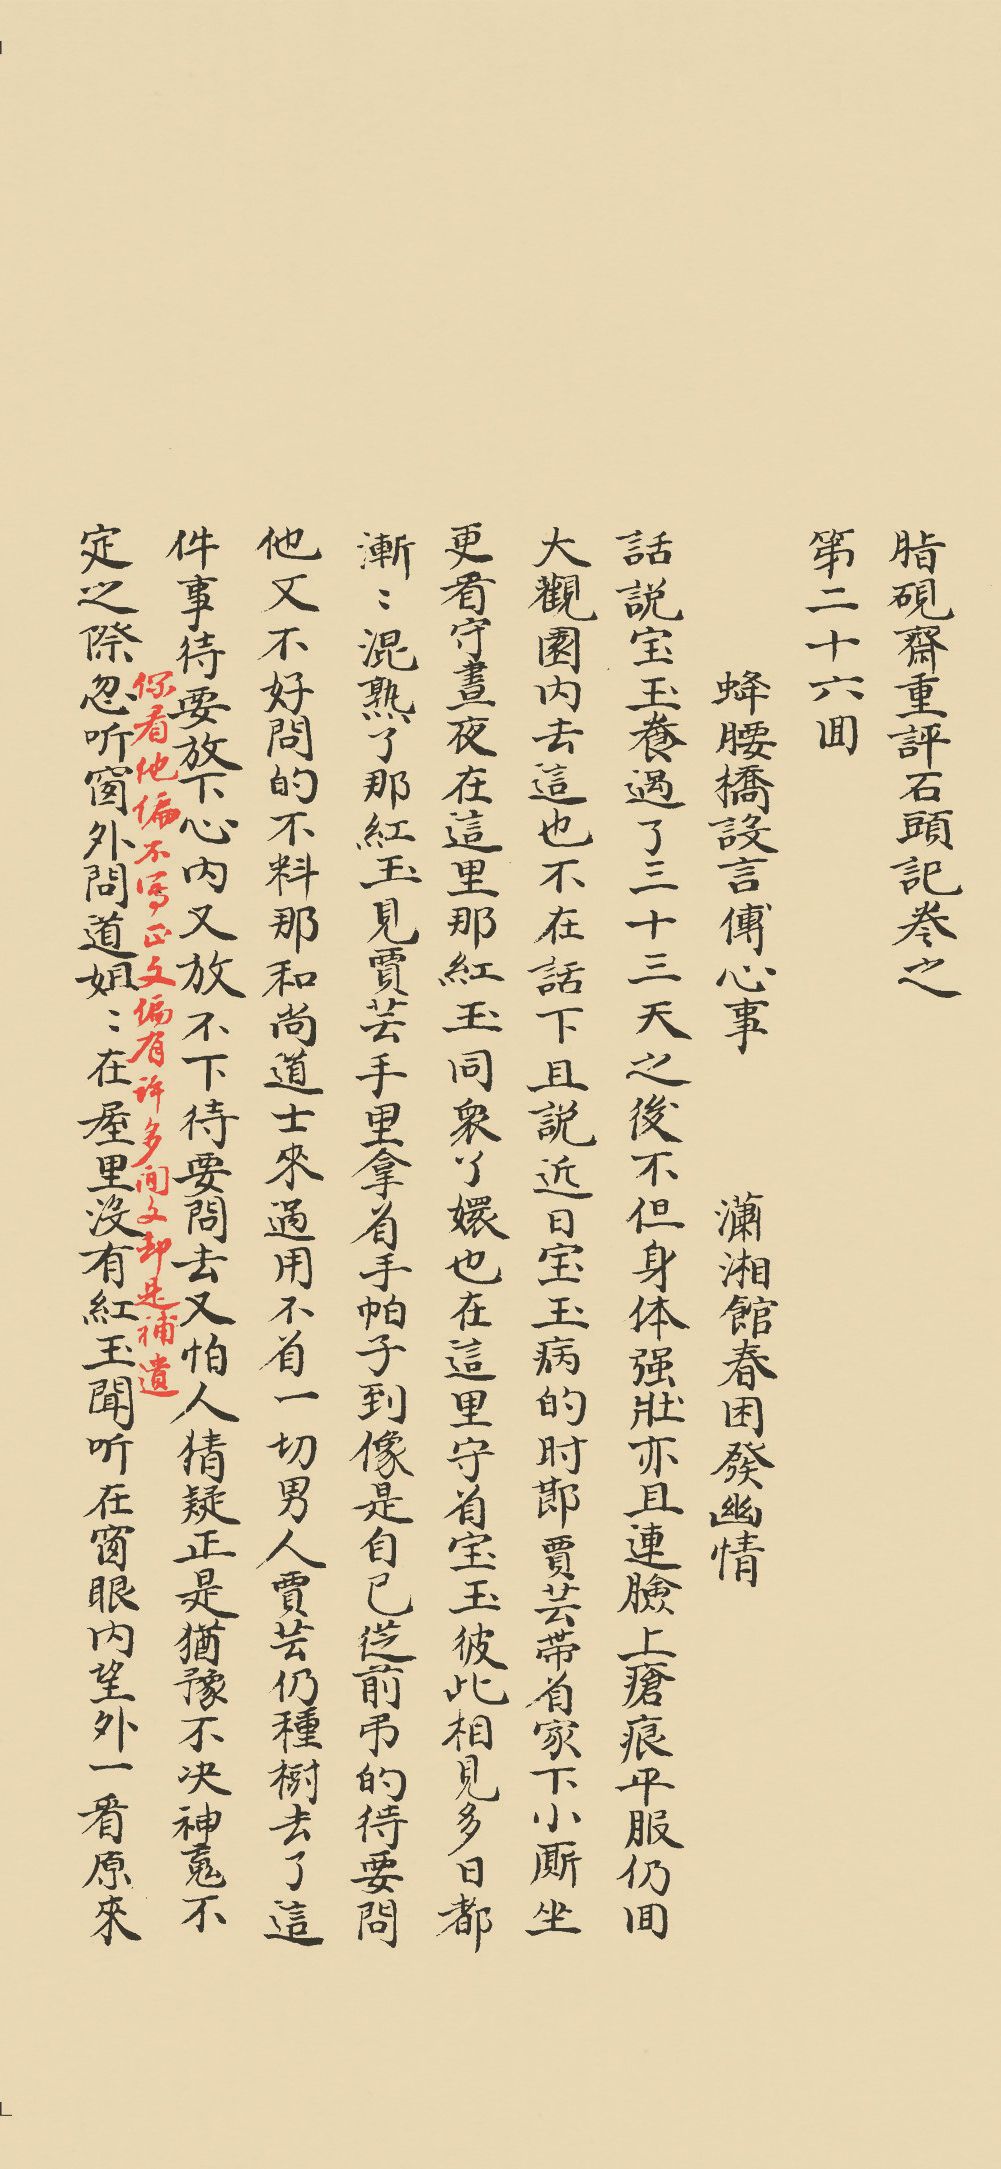 脂硯齋重評石頭記卷之
第二十六回
蜂腰橋設言傳心事　瀟湘館春困發幽情
話説宝玉養過了三十三天之後不但身体强壯亦且連臉上瘡痕平服仍回
大觀園内去這也不在話下且説近日宝玉病的时節賈芸帶着家下小厮坐
更看守晝夜在這里那紅玉同衆丫嬛也在這里守着宝玉彼此相見多日都
漸〻混熟了那紅玉見賈芸手里拿着手帕子到像是自己從前吊的待要問
他又不好問的不料那和尚道士來過用不着一切男人賈芸仍種樹去了這
件事待要放下心内又放不下待要問去又怕人猜疑正是猶豫不决神魂不
你看他偏不写正文偏有許多闲文却是補遺
定之際忽听窗外問道姐〻在屋里没有紅玉聞听在窗眼内望外一看原來